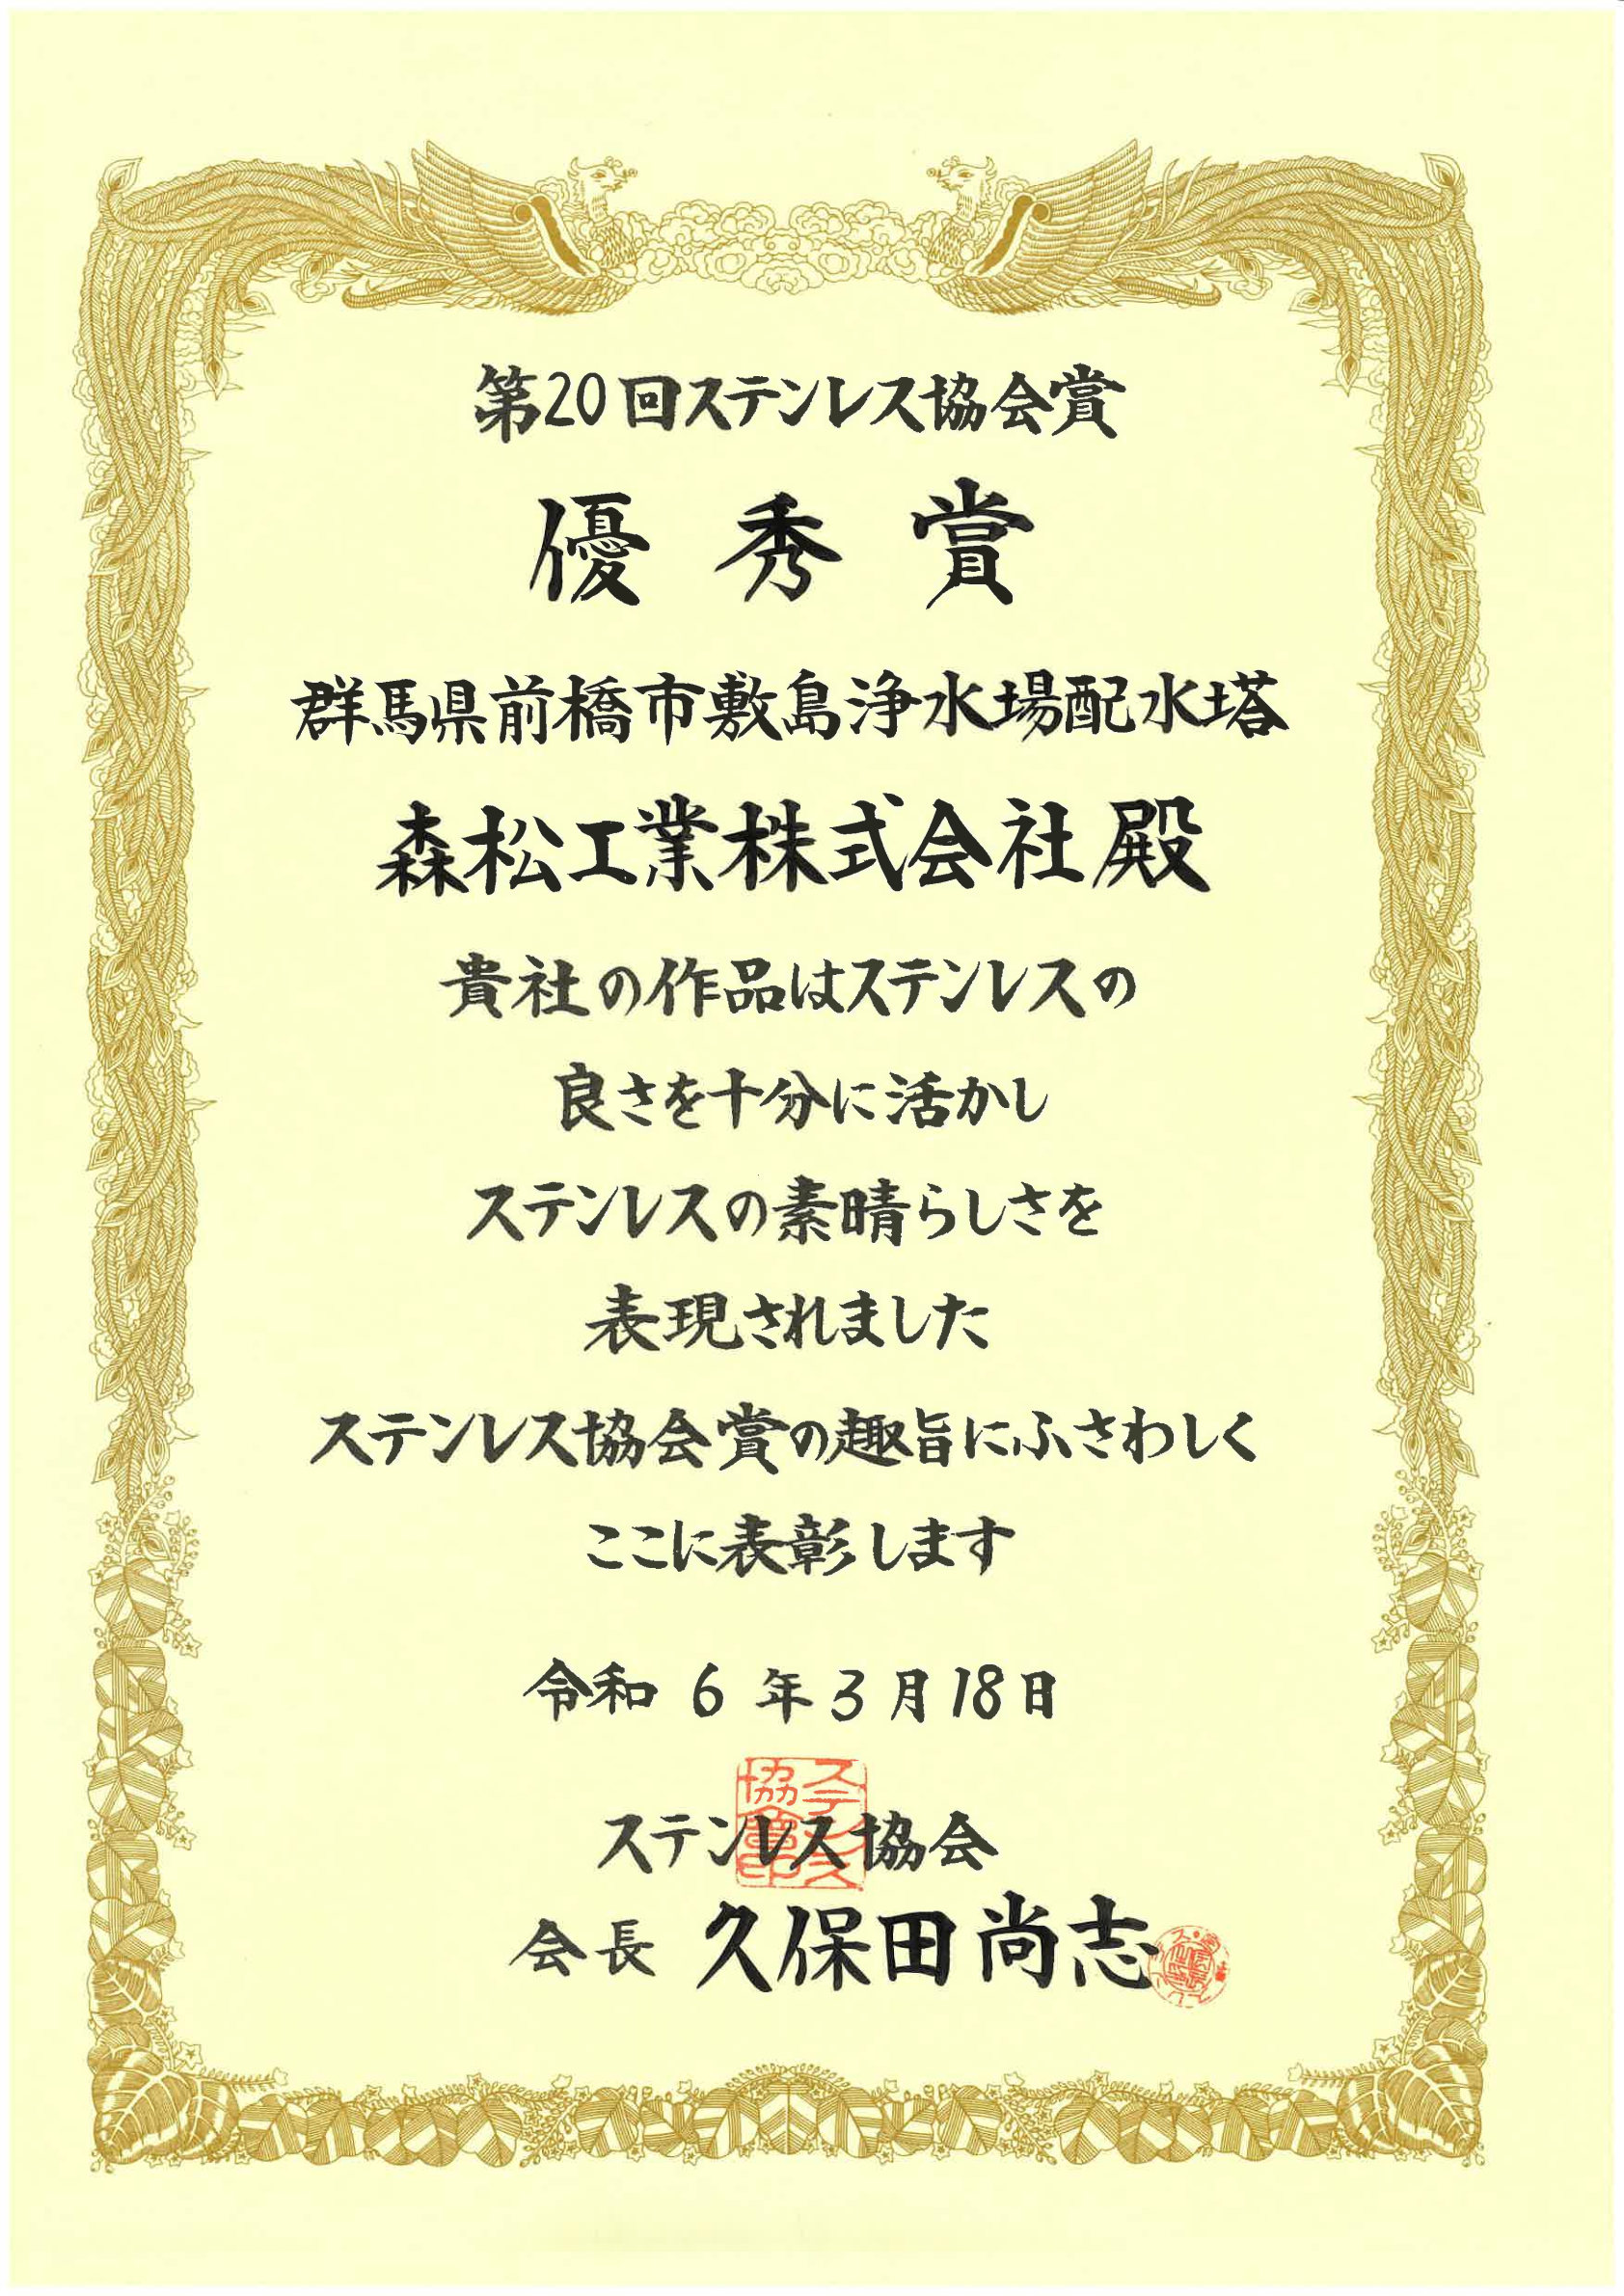 第20回ステンレス協会賞
優秀賞
群馬県前橋市敷島浄水場配水塔
森松工業株式会社 殿
貴社の作品はステンレスの
良さを十分に活かし
ステンレスの素晴らしさを
表現されました
ステンレス協会賞の趣旨にふさわしく
ここに表彰します
令和 6 年 3 月 18 日
ステンレス協会
会長 久保田尚志
ステンレス
協會章印